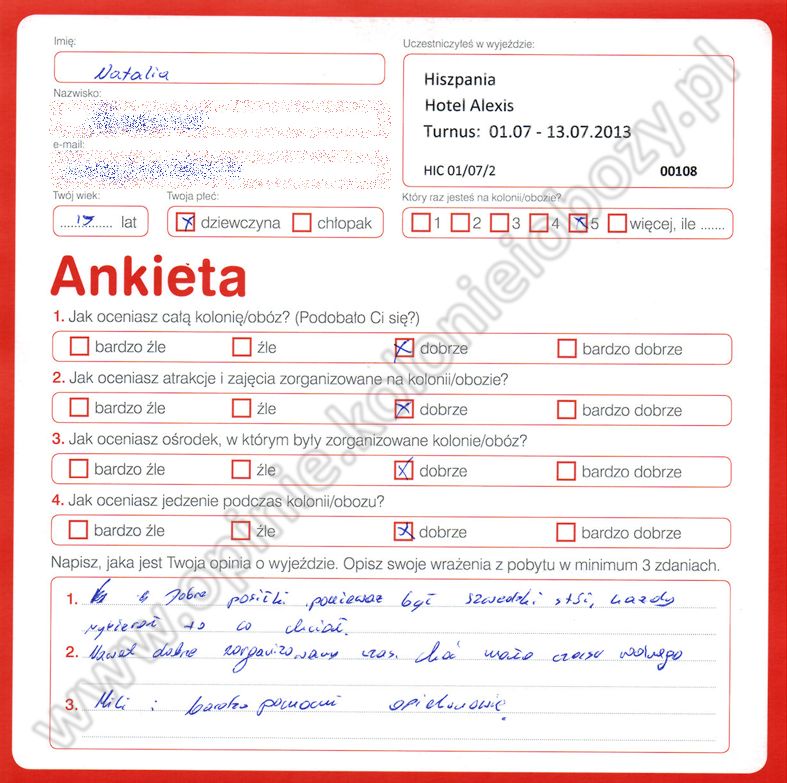 Imię:
Natalia
Nazwisko:
e-mail:
Uczestniczyłeś w wyjeździe:
Hiszpania
Hotel Alexis
Turnus: 01.07 - 13.07.2013
HIC 01/07/2 00108
Twój wiek:
lat
Twoja płeć:
dziewczyna chłopak
Który raz jesteś na kolonii/obozie?
1 2 3 4 5 więcej, ile .......
Ankieta
1. Jak oceniasz całą kolonię/obóz? (Podobało Ci się?)
bardzo źle źle dobrze bardzo dobrze
2. Jak oceniasz atrakcje i zajęcia zorganizowane na kolonii/obozie?
bardzo źle źle dobrze bardzo dobrze
3. Jak oceniasz ośrodek, w którym były zorganizowane kolonie/obóz?
bardzo źle źle dobrze bardzo dobrze
4. Jak oceniasz jedzenie podczas kolonii/obozu?
bardzo źle źle dobrze bardzo dobrze
Napisz, jaka jest Twoja opinia o wyjeździe. Opisz swoje wrażenia z pobytu w minimum 3 zdaniach.
1. Dobre posiłki, ponieważ był szwedzki stół, każdy
wybierał to co chciał.
2. Nawet dobrze zorganizowany czas, choć mało czasu wolnego
3. Mili i bardzo pomocni opiekunowie.
www.opinie.kolonieiobozy.pl